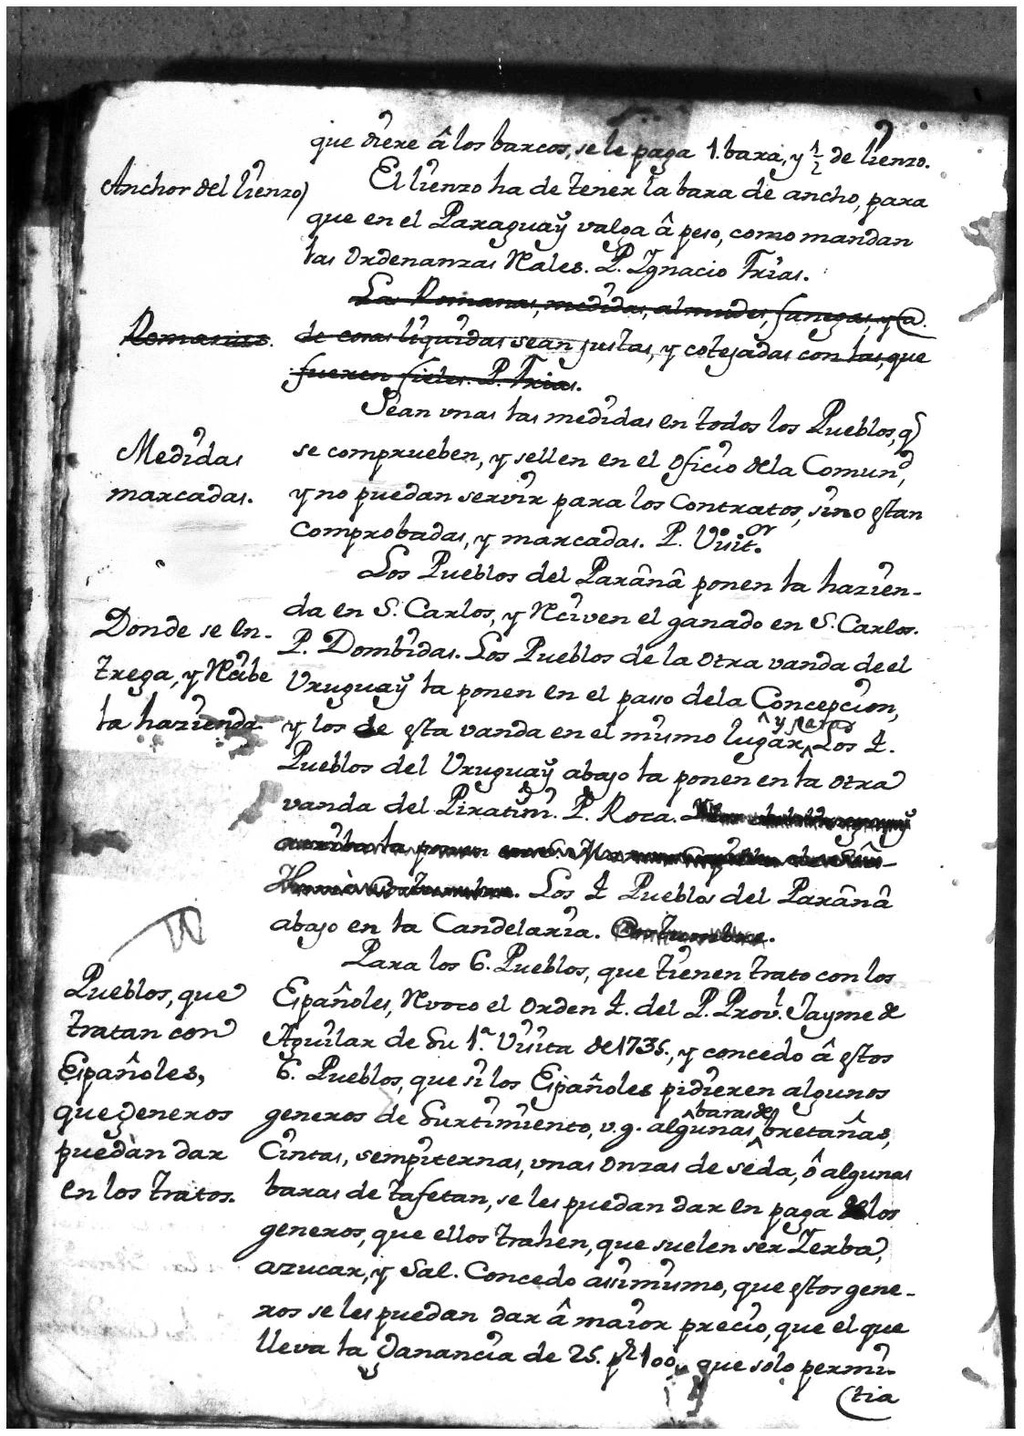 que diere â los barcos, se le paga 1. bara, y ½ de lienzo.
Anchor del lienzo)
El lienzo ha de tener la bara de ancho, para
que en el Paraguaÿ valga â peso, como mandan
las Ordenanzas Rales. P. Ygnacio Frias.
Las Romanas, medidas, almudes, fanegas, y @.
Romanas.
de cosas liquidas sean justas, y cotejadas con las, que
fueren fieles. P. Frias.
Sean unas las medidas en todos los Pueblos, q̃
Medidas
marcadas.
se comprueben, y sellen en el Oficio dela Comunᵈ,
y no puedan servir para los Contratos, sino estan
comprobadas, y marcadas. P. Visitᵒʳ.
Los Pueblos del Parânâ ponen la hazien-
Donde se en-
trega, y Recibe
la hazienda
da en S. Carlos, y Reciven el ganado en S. Carlos.
P. Dombidas. Los Pueblos de la otra vanda de el
Uruguaÿ la ponen en el passo dela Concepcion,
y los de esta vanda en el mismo lugar. Los 4.
Pueblos del Uruguaÿ abajo la ponen en la otra
vanda del Piratini. P. Roca.
arriba la ponen
Los 4 Pueblos del Parânâ
abajo en la Candelaria. Costumbre.
Pueblos, que
tratan con
Españoles,
que generos
puedan dar
en los tratos.
Para los 6. Pueblos, que tienen trato con los
Españoles, Rvoco el Orden 4. del P. Provˡ. Jayme de
Aguilar de Su 1.ª Visita de 1735., y concedo â estos
6. Pueblos, que si los Españoles pidieren algunos
generos de Surtimiento, v.g. algunas baras de bretañas,
Cintas, sempiternas, unas onzas de seda, ô algunas
baras de tafetan, se les puedan dar en paga de los
generos, que ellos trahen, que suelen ser Yerba,
azucar, y Sal. Concedo assimismo, que estos gene-
ros se les puedan dar â maior precio, que el que
lleva la Ganancia de 25. pʳ 100., que solo permi-
(tia